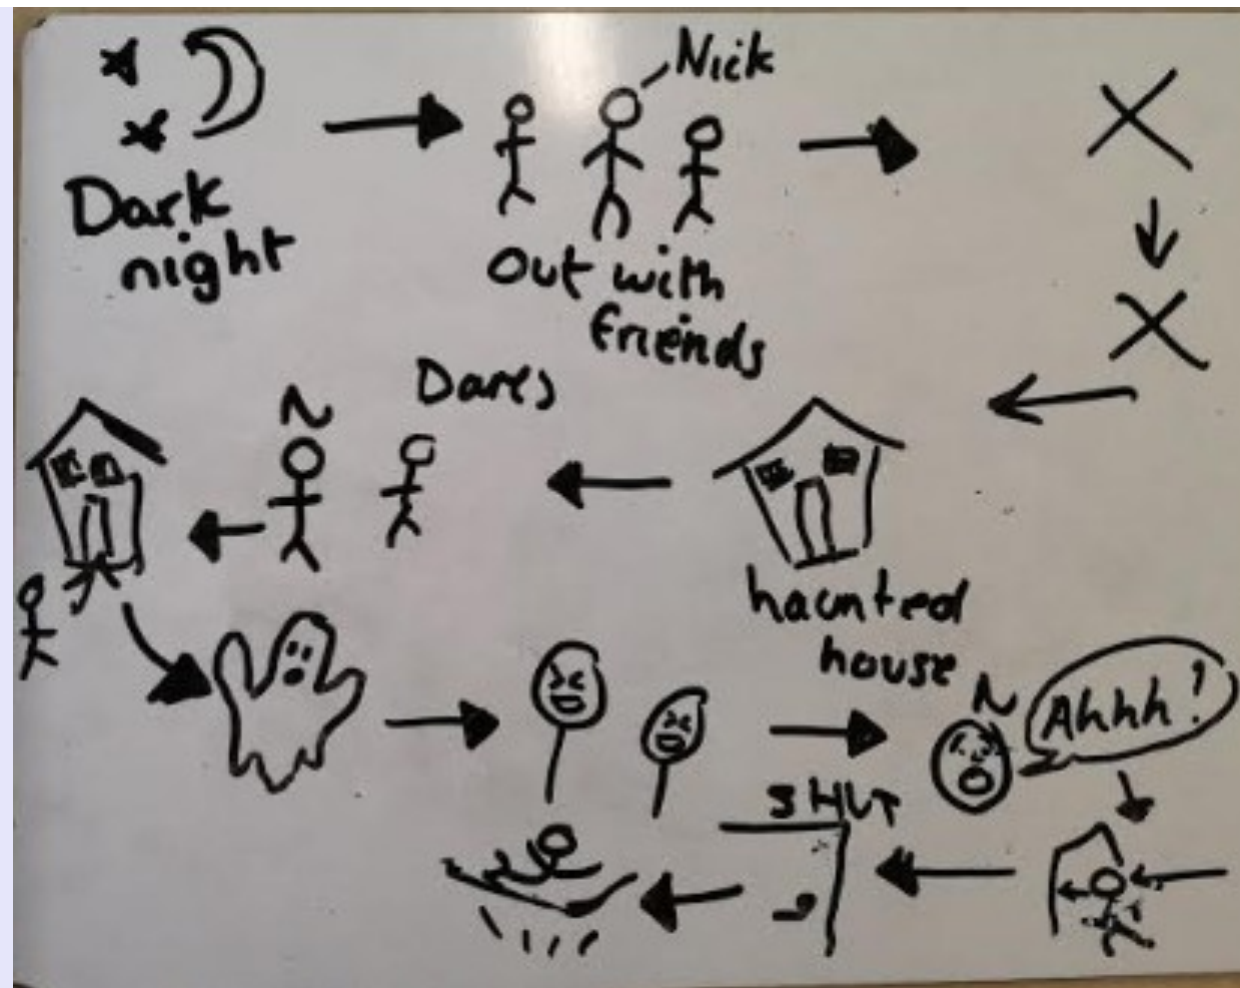 Nick
Dark
night
Out with
friends
Dares
N
haunted
house
N
Ahhh!
SHUT